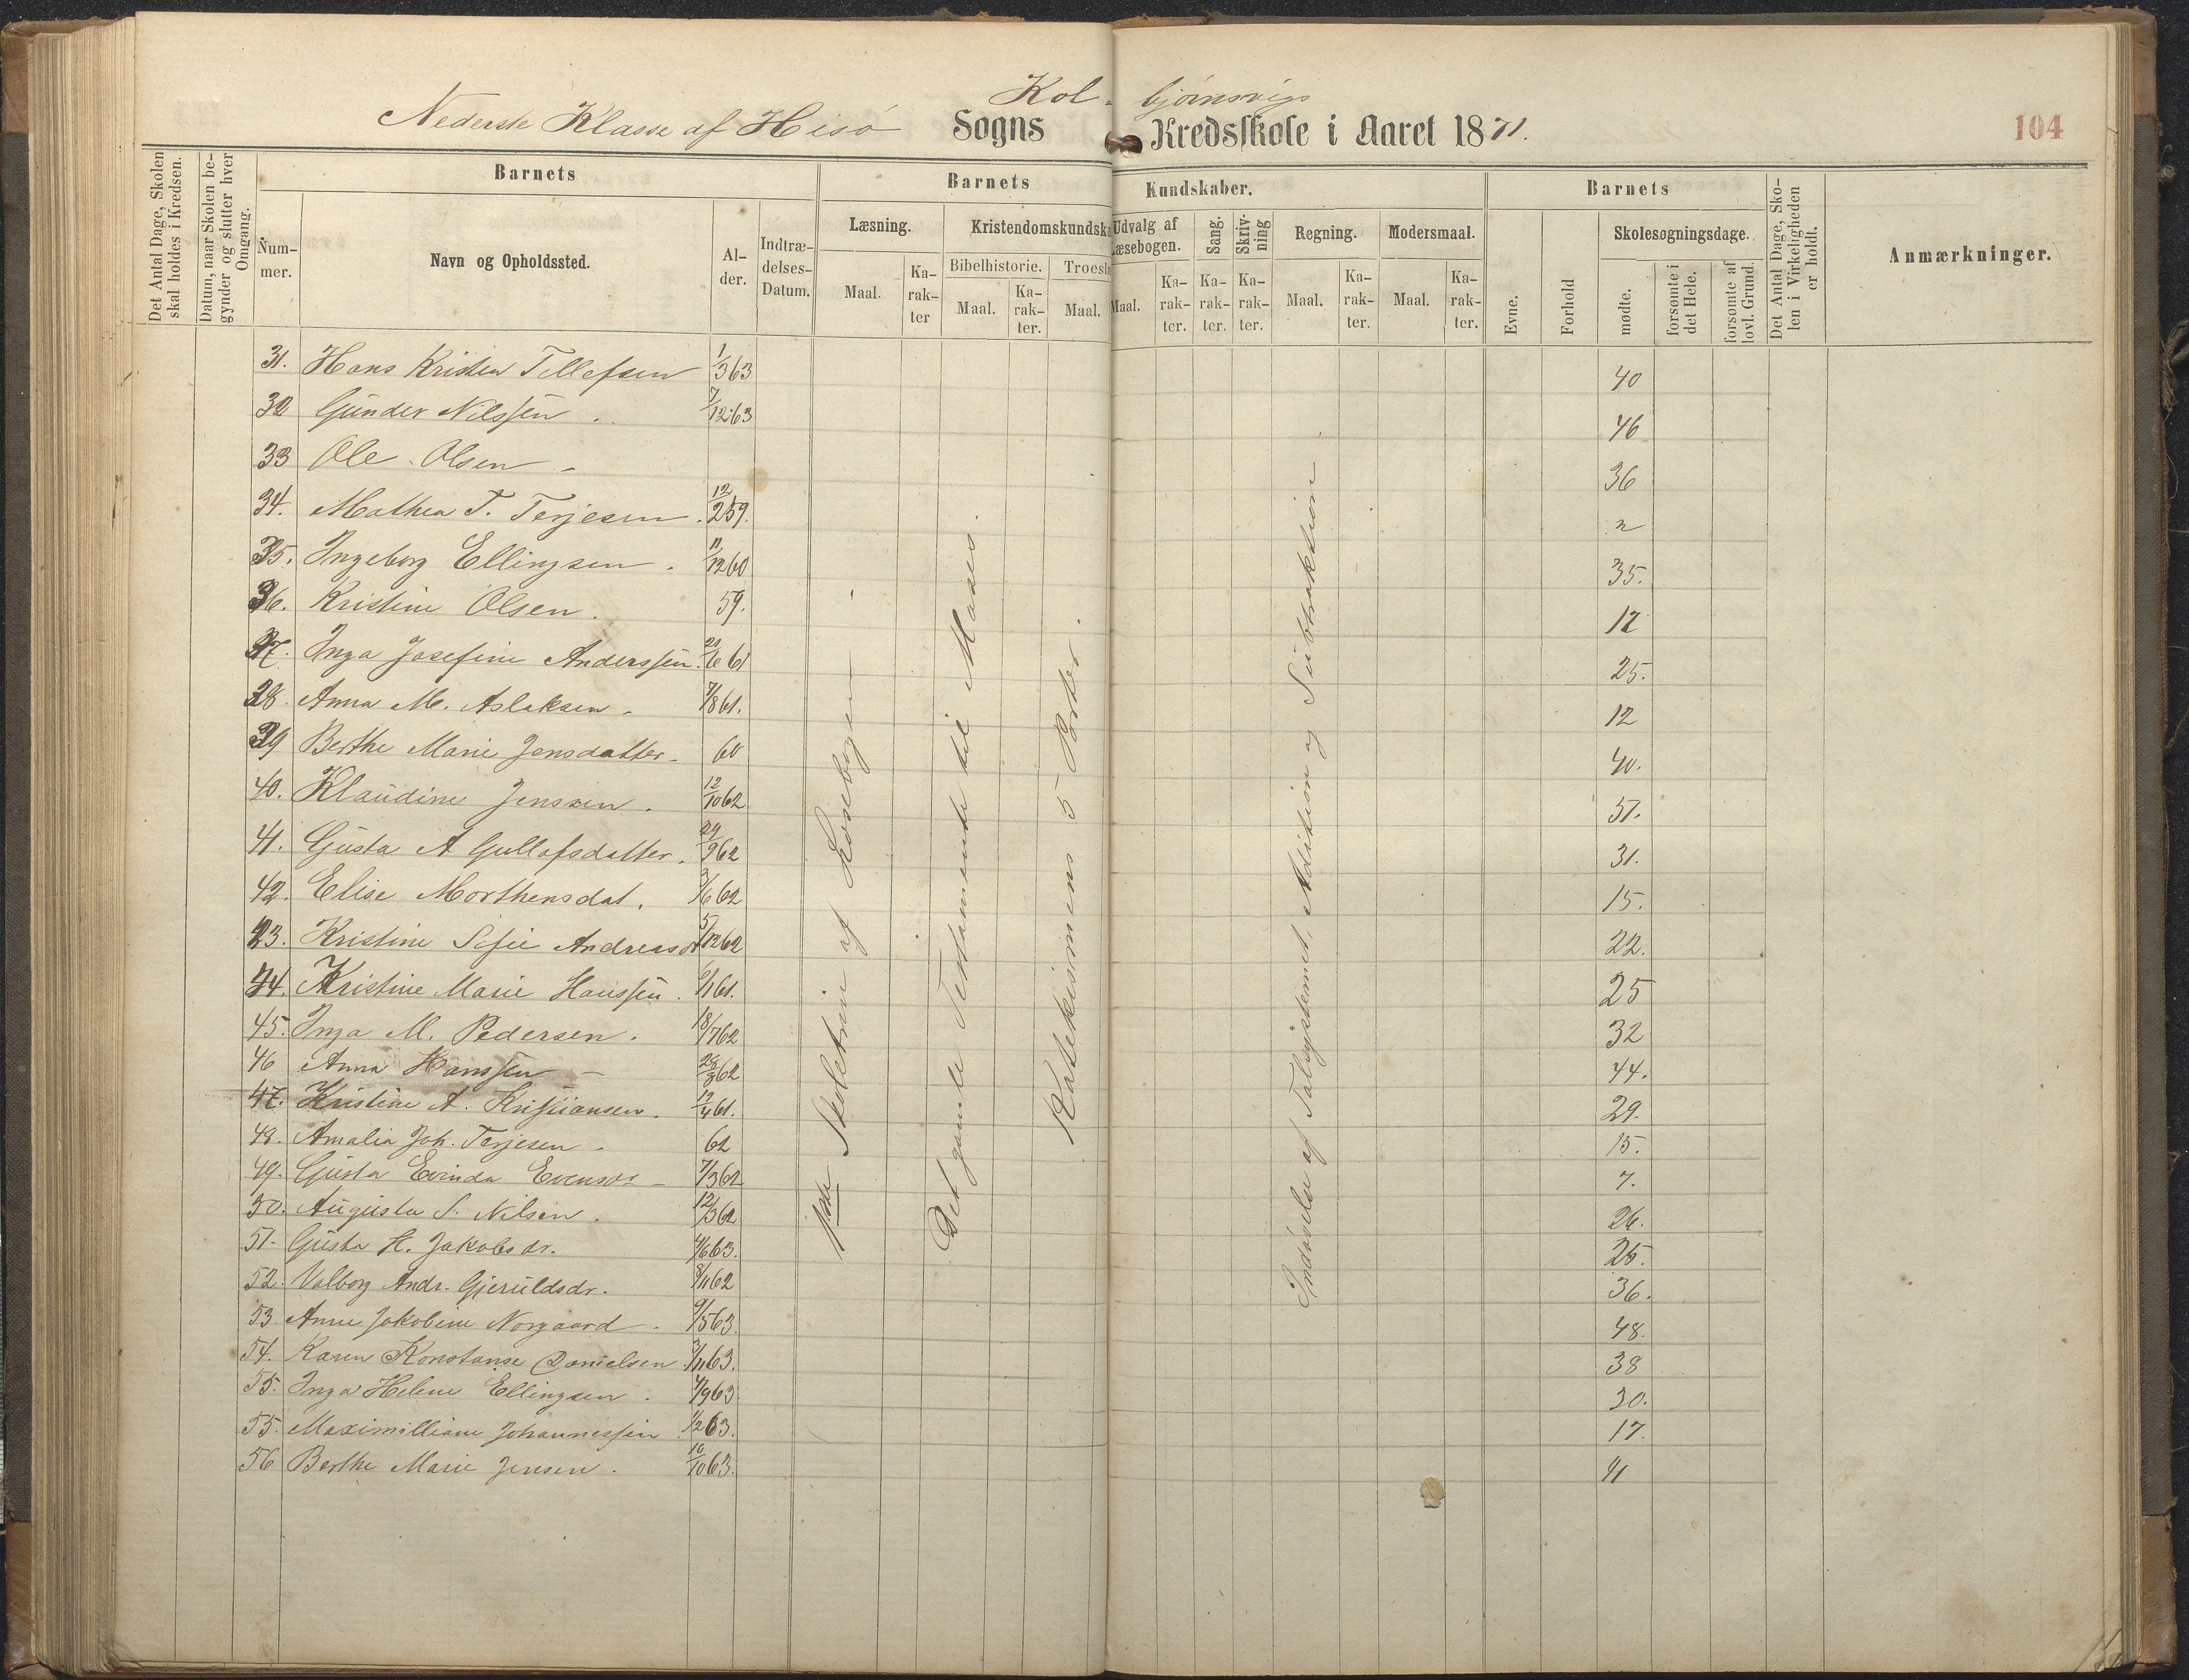 Kol- bjørnsvigs
Nederste Klasse af Hisø Sogns Kredsskole i Aaret 1871.
104
Det Antal Dage, Skolen skal holdes i Kredsen.
Datum, naar Skolen begynder og slutter hver Omgang.
Barnets
Nummer.
Navn og Opholdssted.
Alder.
Indtrædelses-Datum.
Barnets Kundskaber.
Læsning.
Maal.
Karakter
Kristendomskundska
Bibelhistorie.
Maal.
Karakter.
Troesl
Maal.
Udvalg af Læsebogen.
Maal.
Karakter.
Sang.
Karakter.
Skrivning
Karakter.
Regning.
Maal.
Karakter.
Modersmaal.
Maal.
Karakter.
Barnets
Evne.
Forhold
Skolesøgningsdage.
mødte.
forsømte i det Hele.
forsømte af lovl. Grund.
Det Antal Dage, Skolen i Virkeligheden er holdt.
Anmærkninger.
31. Hans Kristen Tellefsen 1/3 63 40
32 Gunder Nilssen. 7/12 63 46
33 Ole Olsen - 36
34. Mathea T. Terjesen. 12/2 59. 2
35. Ingeborg Ellingsen. 11/12 60 35.
36. Kristine Olsen. 59. 12
37. Inga Josefine Anderssen. 61 25.
38. Anna M. Aslaksen - 7/8 61. 12
39 Berthe Marie Jensdatter - 60 40.
40. Klaudine Jenssen. 12/10 62 51.
41. Gusta A Gullofsdatter. 29/9 62 31.
42. Elise Morthensdat. 3/6 62 15.
43. Kristine Sofie Andreasdr 5/12 62 22.
44. Kristine Marie Hanssen. 6/11 61. 25
45. Inga M. Pedersen. 18/7 62 32
46 Anna Hanssen - 62 44.
47. Kristine A. Kristiansen. 12/4 61. 29.
48. Amalia Joh. Terjesen - 62 15.
49. Gusta Evinda Evensdr - 7/3 62 7.
50. Augusta S. Nilsen. 12/3 62 26.
51. Gusta H. Jakobsdr. 4/6 63. 25.
52. Valborg Andr. Gjeruldsdr. 8/11 62 36.
53 Anne Jakobine Norgaard. 9/5 63. 48.
54. Karen Konstanse Danielsen. 3/11 63. 38
55. Inga Helene Ellingsen. 4/9 63 30.
55. Maximilliane Johannessen 1/2 63. 17.
56 Berthe Marie Jensen. 10/10 63. 41
1ste Skoletrin af Læsebogen
Det gamle Testamente til Moses
Katekismens 5 Parter.
Indøvelse af Talsystemet, Addition og Subtraktion